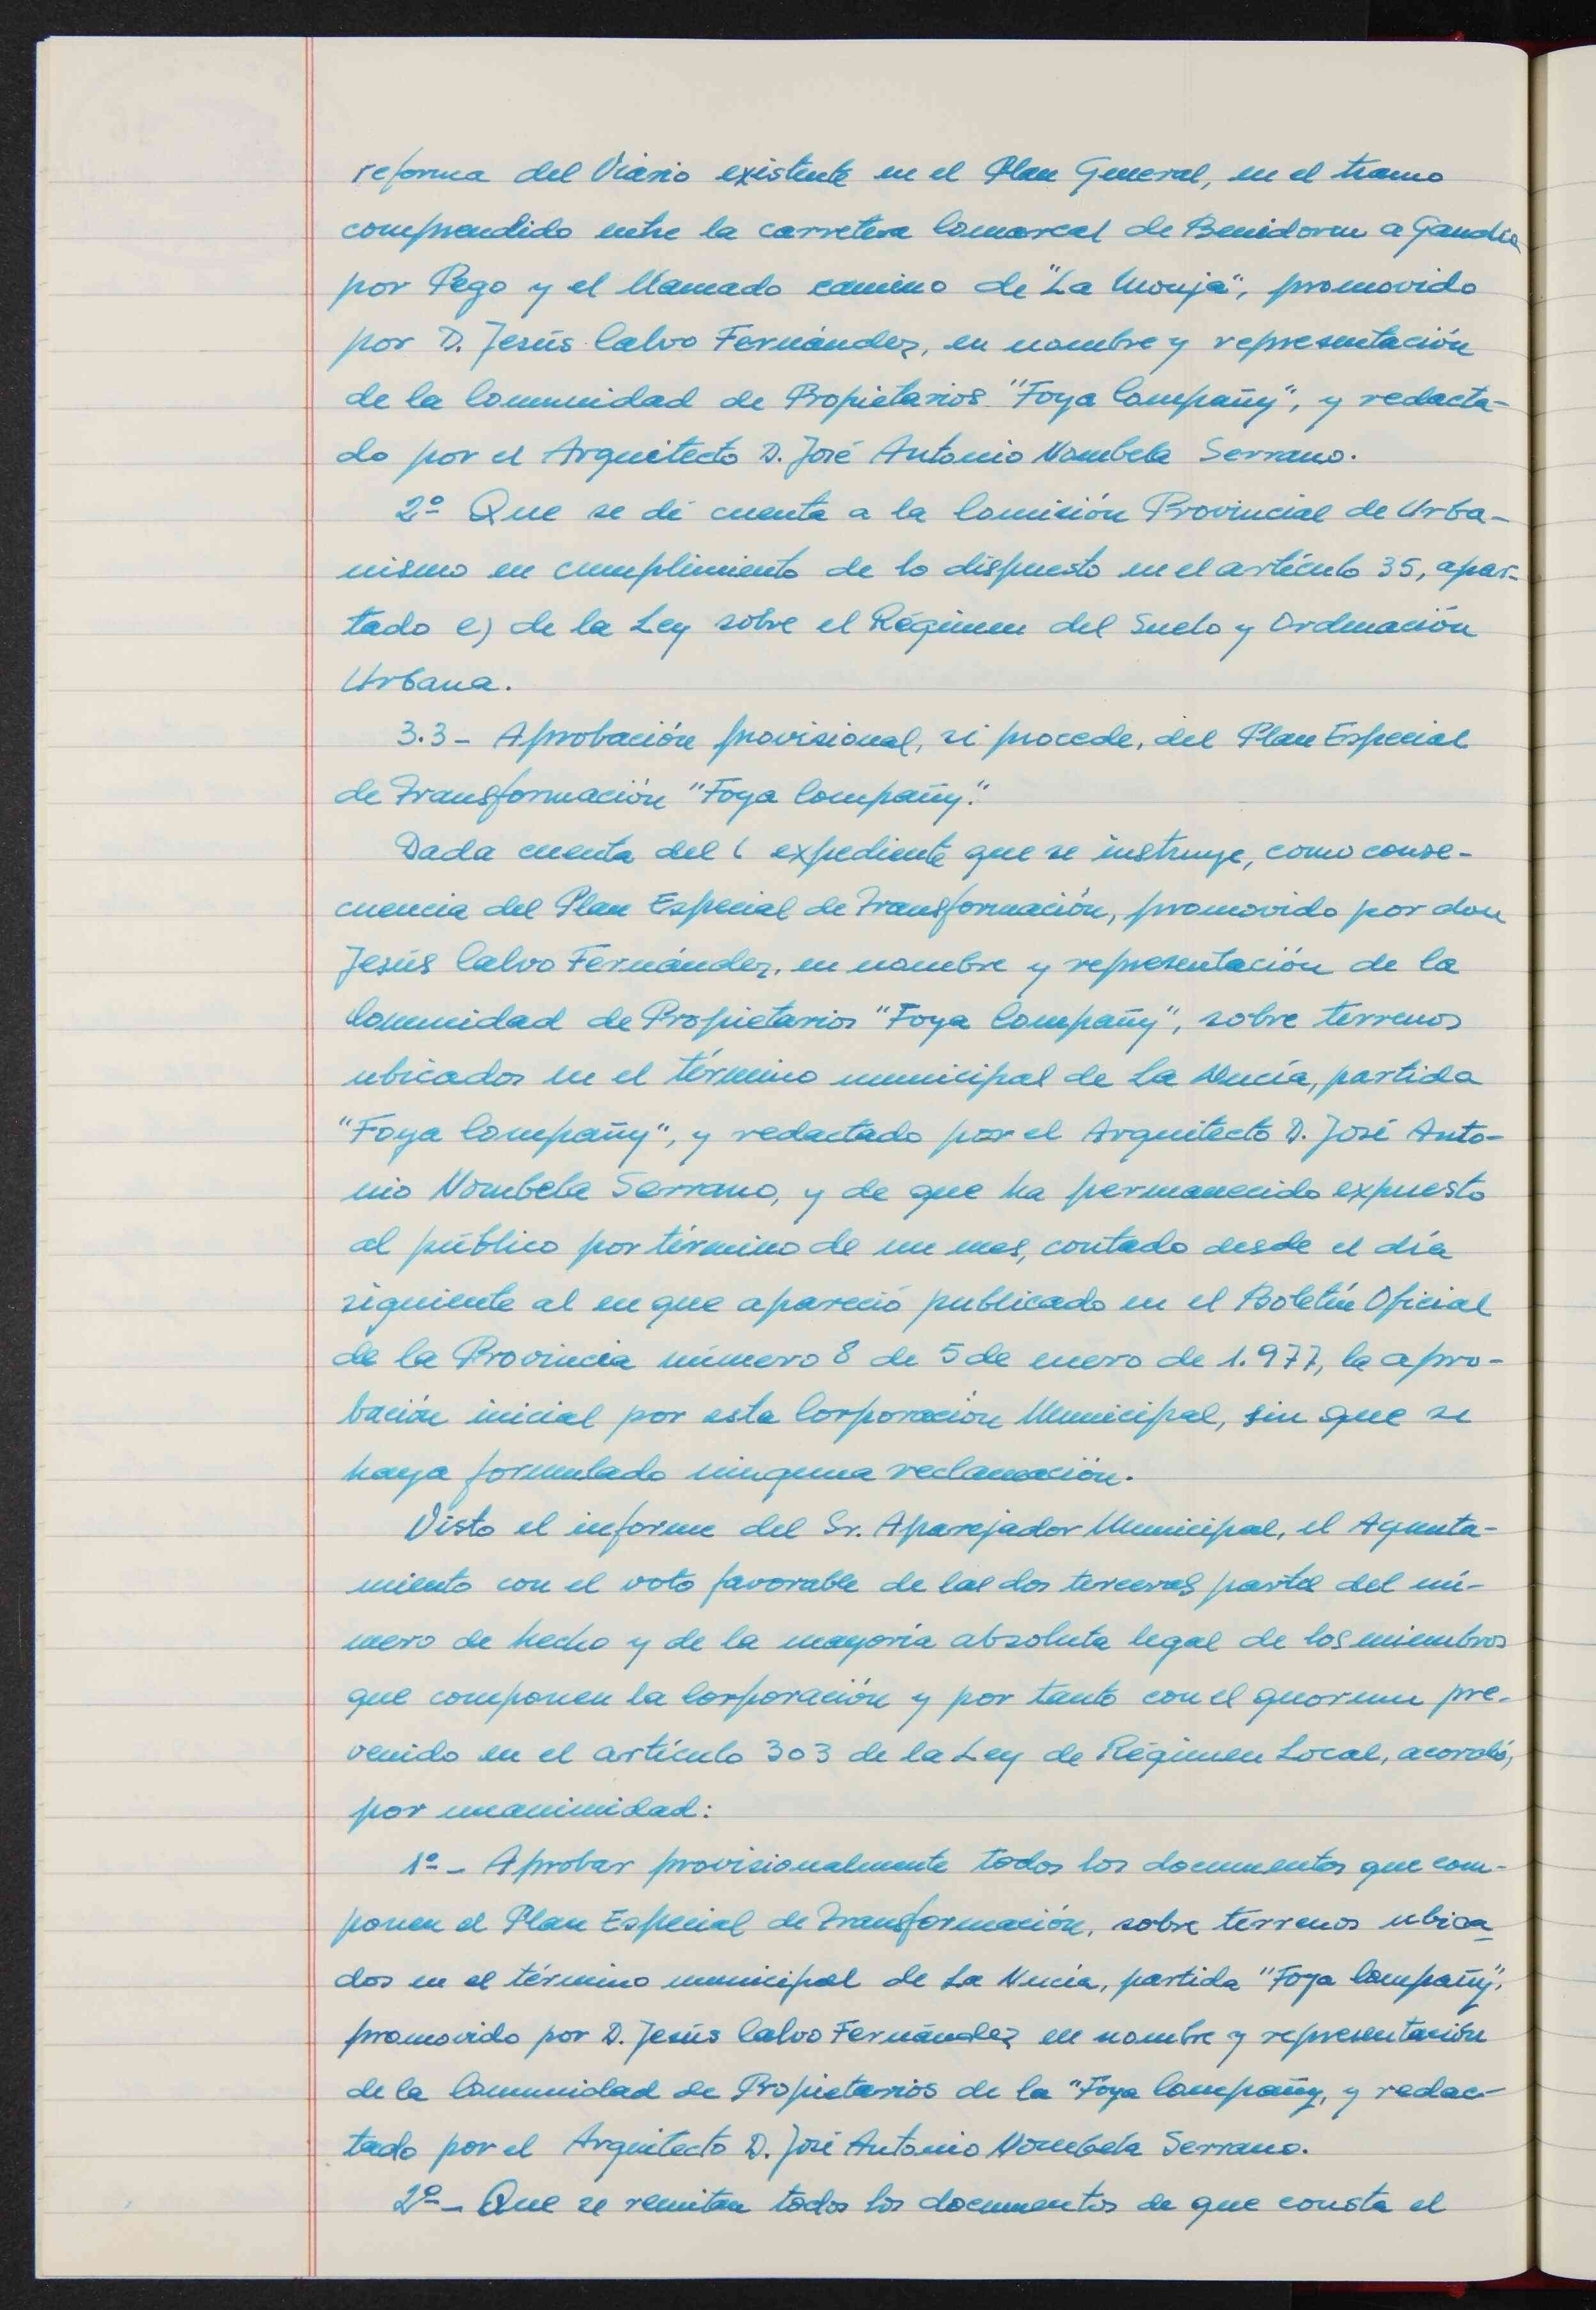 reforma del Viario existente en el Plan General, en el tramo
comprendido entre la carretera Comarcal de Benidorm a Gandia
por Pego y el llamado camino de "La Monja", promovido
por D. Jesús Calvo Fernández, en nombre y representación
de la Comunidad de Propietarios "Foya Compañy", y redacta-
do por el Arquitecto D. José Antonio Nombela Serrano.
2º Que se dé cuenta a la Comisión Provincial de Urba-
nismo en cumplimiento de lo dispuesto en el artículo 35, apar-
tado e) de la Ley sobre el Régimen del Suelo y Ordenación
Urbana.
3.3- Aprobación provisional, si procede, del Plan Especial
de Transformación "Foya Compañy".
Dada cuenta del expediente que se instruye, como conse-
cuencia del Plan Especial de Transformación, promovido por don
Jesús Calvo Fernández, en nombre y representación de la
Comunidad de Propietarios "Foya Compañy", sobre terrenos
ubicados en el término municipal de La Nucía, partida
"Foya Compañy", y redactado por el Arquitecto D. José Anto-
nio Nombela Serrano, y de que ha permanecido expuesto
al público por término de un mes, contado desde el día
siguiente al en que apareció publicado en el Boletín Oficial
de la Provincia número 8 de 5 de enero de 1.977, la apro-
bación inicial por esta Corporación Municipal, sin que se
haya formulado ninguna reclamación.
Visto el informe del Sr. Aparejador Municipal, el Ayunta-
miento con el voto favorable de las dos terceras partes del nú-
mero de hecho y de la mayoría absoluta legal de los miembros
que componen la Corporación y por tanto con el quorum pre-
venido en el artículo 303 de la Ley de Régimen Local, acordó,
por unanimidad:
1º- Aprobar provisionalmente todos los documentos que com-
ponen el Plan Especial de Transformación, sobre terrenos ubica-
dos en el término municipal de La Nucía, partida "Foya Compañy",
promovido por D. Jesús Calvo Fernández en nombre y representación
de la Comunidad de Propietarios de la "Foya Compañy, y redac-
tado por el Arquitecto D. José Antonio Nombela Serrano.
2º- Que se remitan todos los documentos de que consta el